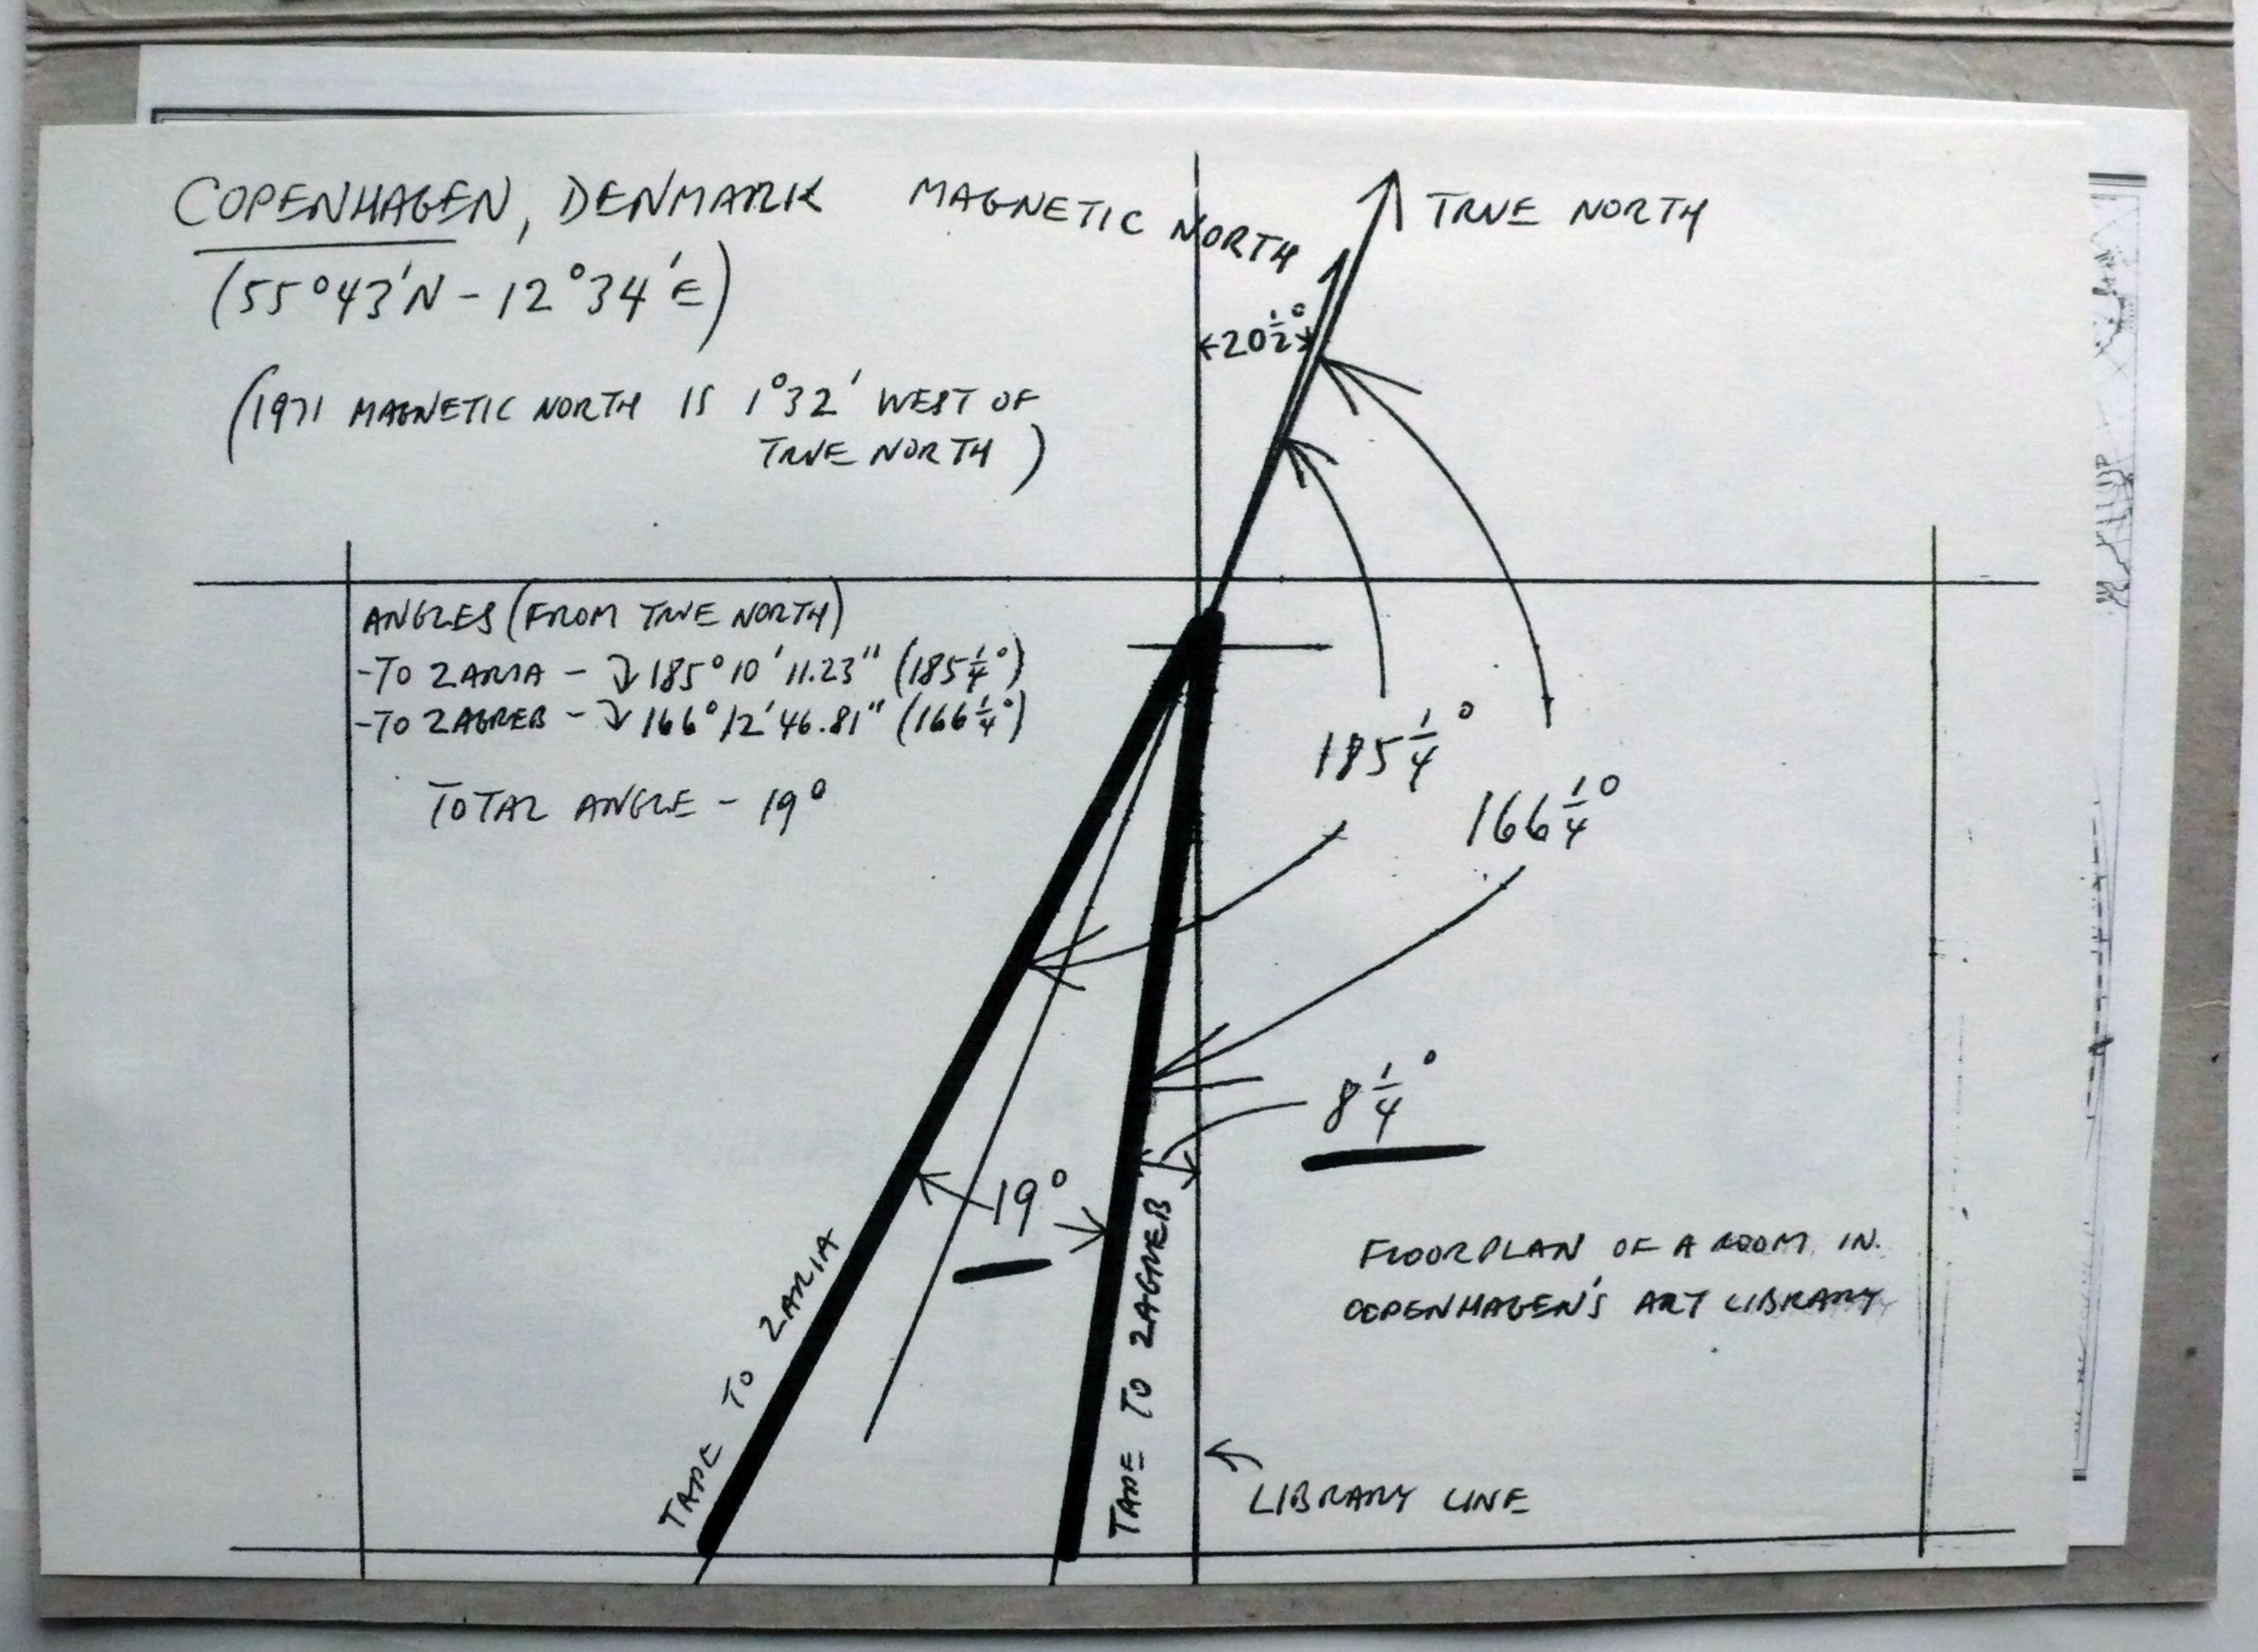 COPENHAGEN, DENMARK
(55°43'N - 12°34'E)
(1971 MAGNETIC NORTH IS 1°32' WEST OF
TRUE NORTH)
MAGNETIC NORTH
TRUE NORTH
20 1/2°
ANGLES (FROM TRUE NORTH)
-TO ZARIA - ↴ 185°10'11.23" (185 1/4°)
-TO ZAGREB - ↴ 166°12'46.81" (166 1/4°)
TOTAL ANGLE - 19°
185 1/4°
166 1/4°
8 1/4°
19°
TAPE TO ZARIA
TAPE TO ZAGREB
FLOORPLAN OF A ROOM IN
COPENHAGEN'S ART LIBRARY
LIBRARY LINE